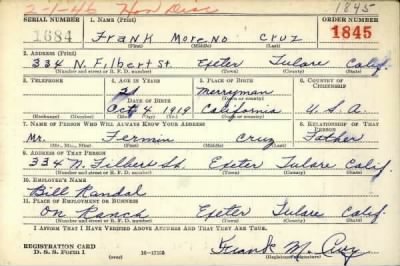 2-1-46 Hon Disc 1845
SERIAL NUMBER 1. NAME (Print) ORDER NUMBER
1684 Frank Moreno Cruz 1845
(First) (Middle) (Last)
2. ADDRESS (Print)
334 N. Filbert St. Exeter Tulare Calif.
(Number and street or R. F. D. number) (Town) (County) (State)
3. TELEPHONE 4. AGE IN YEARS 5. PLACE OF BIRTH 6. COUNTRY OF CITIZENSHIP
21 Merryman
DATE OF BIRTH (Town or county)
Oct 4 1919 California U. S. A.
(Exchange) (Number) (Mo.) (Day) (Yr.) (State or country)
7. NAME OF PERSON WHO WILL ALWAYS KNOW YOUR ADDRESS 8. RELATIONSHIP OF THAT PERSON
Mr. Fermin Cruz Father
(Mr., Mrs., Miss) (First) (Middle) (Last)
9. ADDRESS OF THAT PERSON
334 N. Filbert St. Exeter Tulare Calif.
(Number and street or R. F. D. number) (Town) (County) (State)
10. EMPLOYER'S NAME
Bill Randal
11. PLACE OF EMPLOYMENT OR BUSINESS
On Ranch Exeter Tulare Calif.
(Number and street or R. F. D. number) (Town) (County) (State)
I AFFIRM THAT I HAVE VERIFIED ABOVE ANSWERS AND THAT THEY ARE TRUE.
REGISTRATION CARD
D. S. S. Form 1 16-17105 Frank M. Cruz
(Registrant's signature)